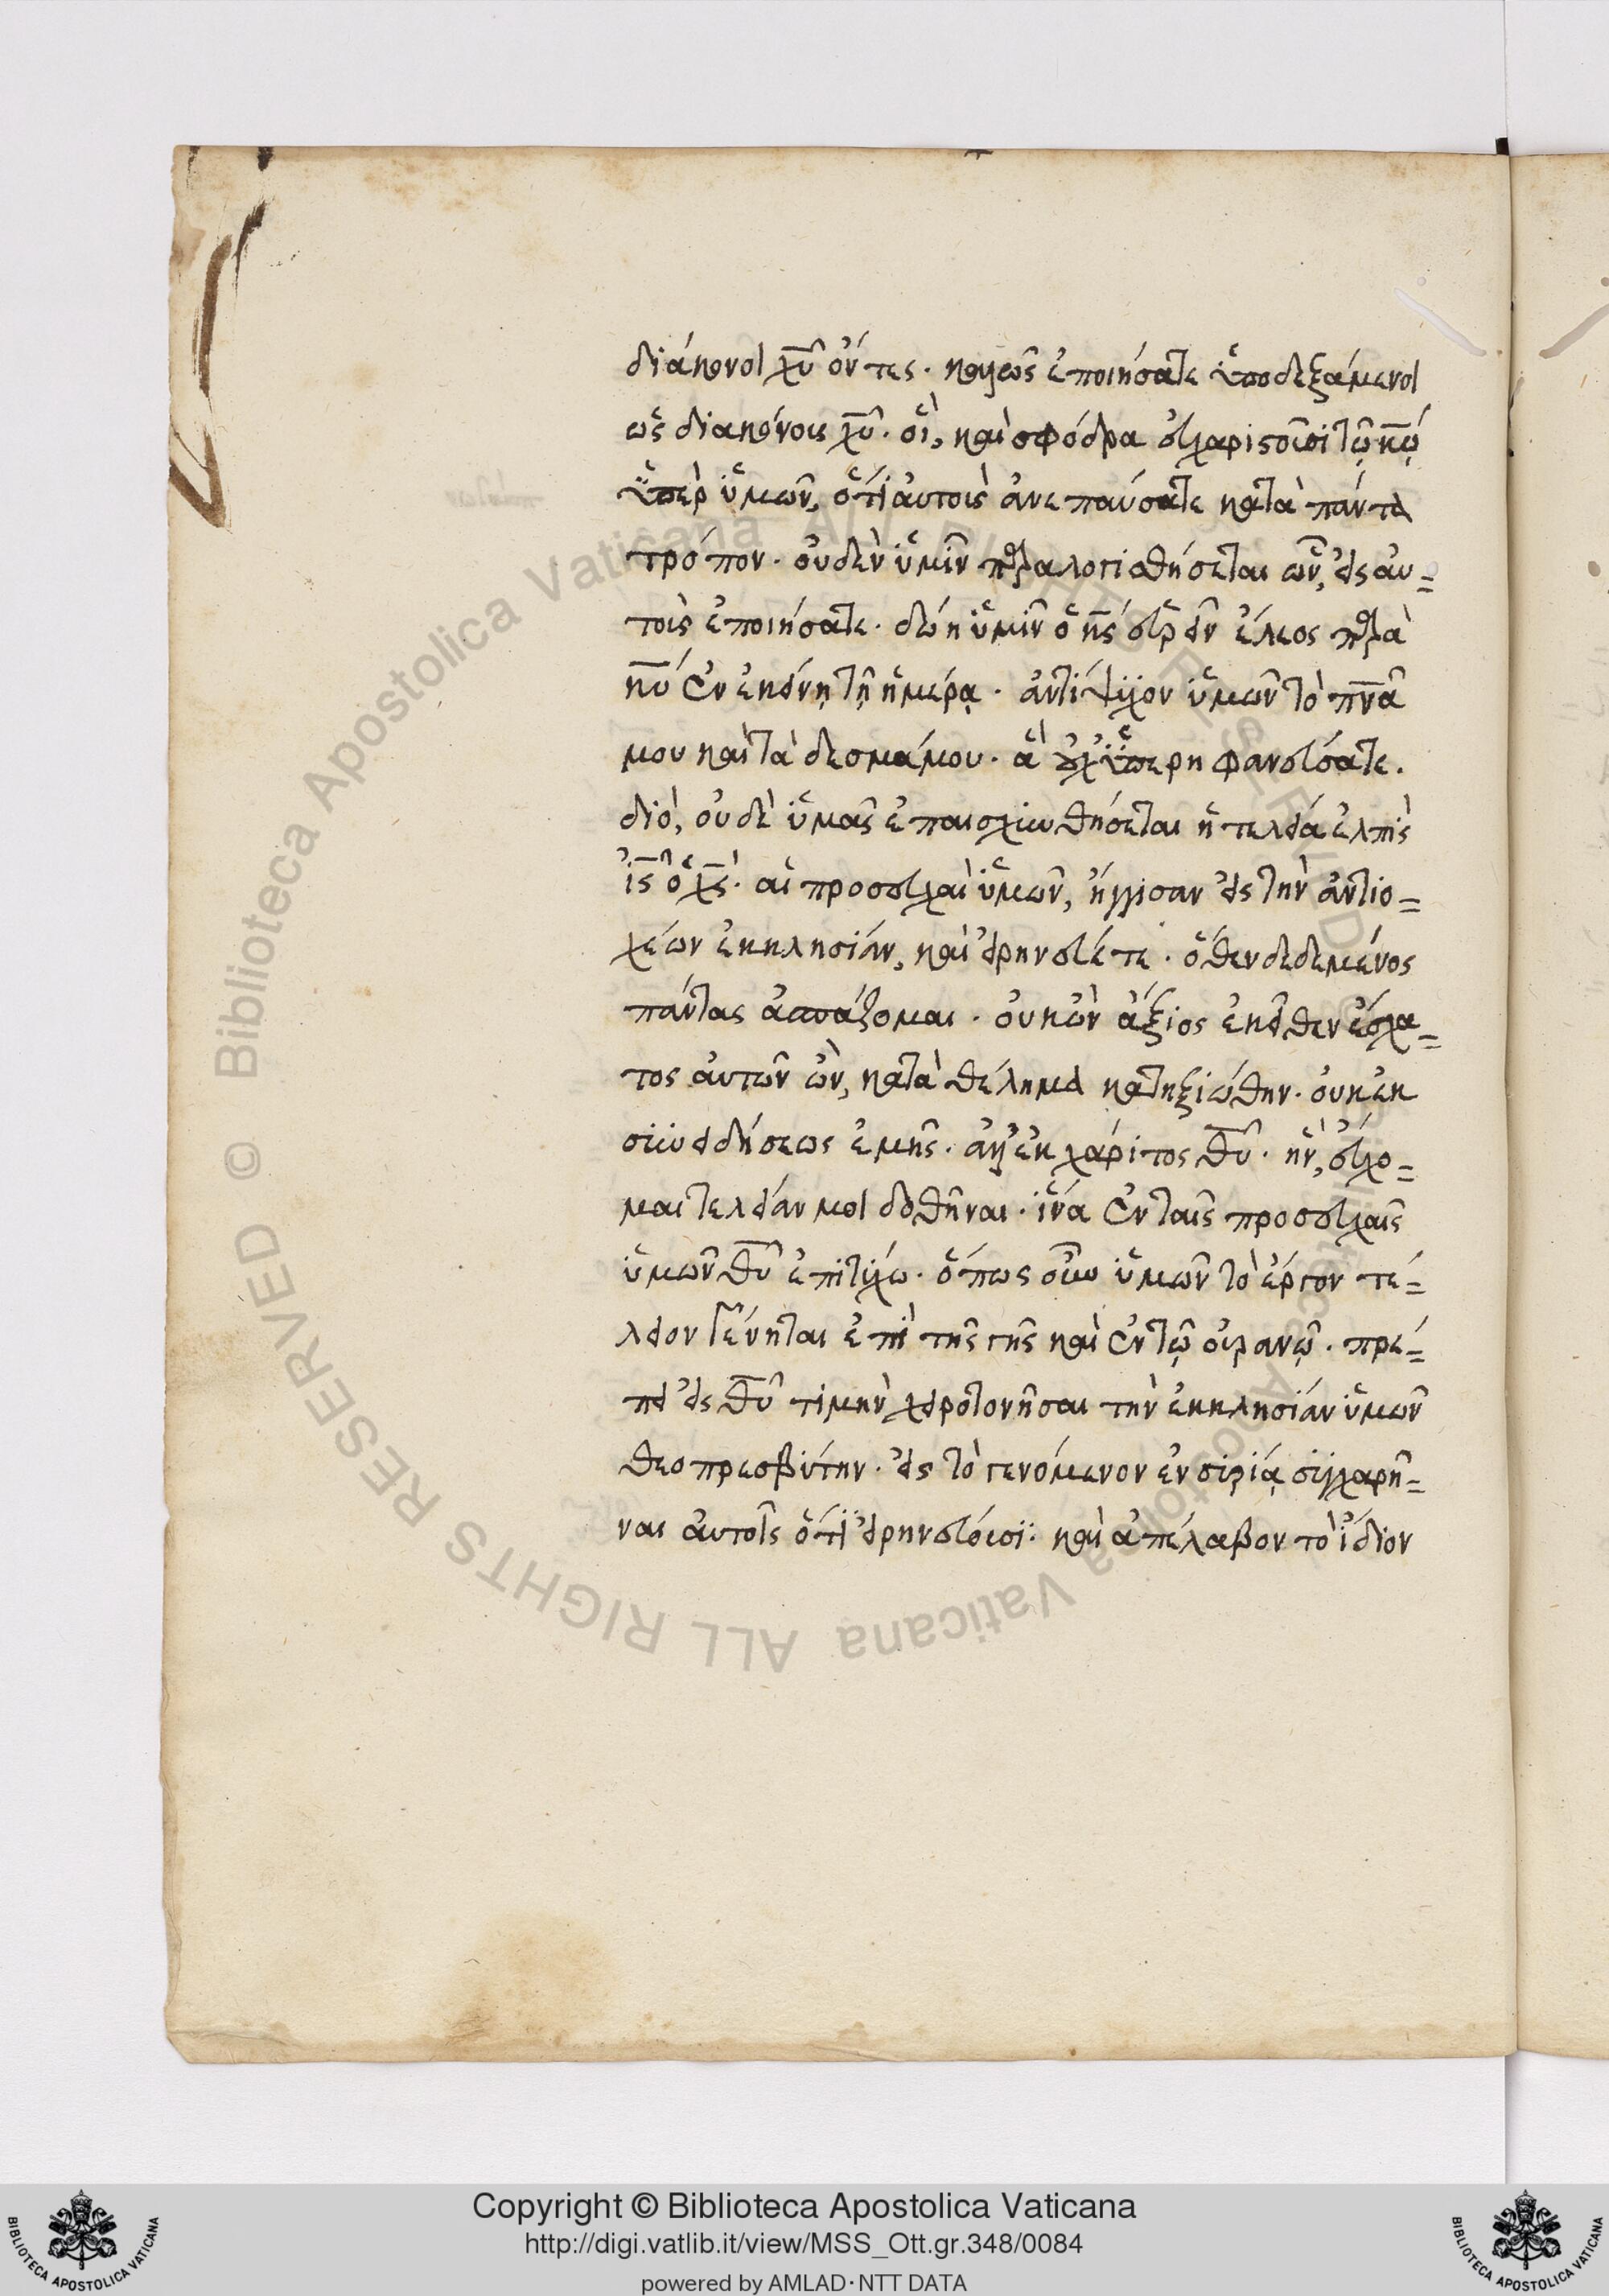 διάκονοι χυ ὄντες· καλῶς ἐποιήσατε ὑποδεξάμενοι
ὡς διακόνους χυ· οἳ, καὶ σφόδρα εὐχαριστοῦσι τῷ κω
ὑπὲρ ὑμῶν, ὅτι αὐτοὺς ἀνεπαύσατε κατὰ πάντα
τρόπον· οὐδὲν ὑμῖν παραλογισθήσεται ὧν, εἰς αὐ=
τοὺς ἐποιήσατε· δώη ὑμῖν ὁ κς εὑρεῖν ἔλεος παρὰ
κυ ἐν ἐκείνῃ τῇ ἡμέρᾳ· ἀντίψυχον ὑμῶν τὸ πνα
μου καὶ τὰ δεσμά μου· ἃ οὐχ ὑπερηφανεύσατε.
διὸ, οὐδὲ ὑμᾶς ἐπαισχυνθήσεται ἡ τελεία ἐλπὶς
ις ὁ χς· αἱ προσευχαὶ ὑμῶν, ἤγγισαν εἰς τὴν ἀντιο=
χέων ἐκκλησίαν, καὶ εἰρηνεύετε· ὅθεν δεδεμένος
πάντας ἀσπάζομαι· οὐκ ὢν ἄξιος ἐκεῖθεν ἔσχα=
τος αὐτῶν ὢν, κατὰ θέλημα κατηξιώθην· οὐκ ἐκ
συνειδήσεως ἐμῆς· ἀλλ' ἐκ χάριτος θυ· ἣν, εὔχο=
μαι τελείαν μοι δοθῆναι· ἵνα ἐν ταῖς προσευχαῖς
ὑμῶν θυ ἐπιτύχω· ὅπως οὖν ὑμῶν τὸ ἔργον τέ=
λειον γένηται ἐπὶ τῆς γῆς καὶ ἐν τῷ οὐρανῷ· πρέ=
πει εἰς θυ τιμὴν χειροτονῆσαι τὴν ἐκκλησίαν ὑμῶν
θεοπρεσβύτην· εἰς τὸ γενόμενον ἐν συρίᾳ συγχαρῆ=
ναι αὐτοῖς ὅτι εἰρηνεύουσι· καὶ ἀπέλαβον τὸ ἴδιον
Copyright © Biblioteca Apostolica Vaticana
http://digi.vatlib.it/view/MSS_Ott.gr.348/0084
powered by AMLAD·NTT DATA
BIBLIOTECA APOSTOLICA VATICANA
BIBLIOTECA APOSTOLICA VATICANA
Biblioteca Apostolica Vaticana ALL RIGHTS RESERVED ©
Biblioteca Apostolica Vaticana ALL RIGHTS RESERVED ©